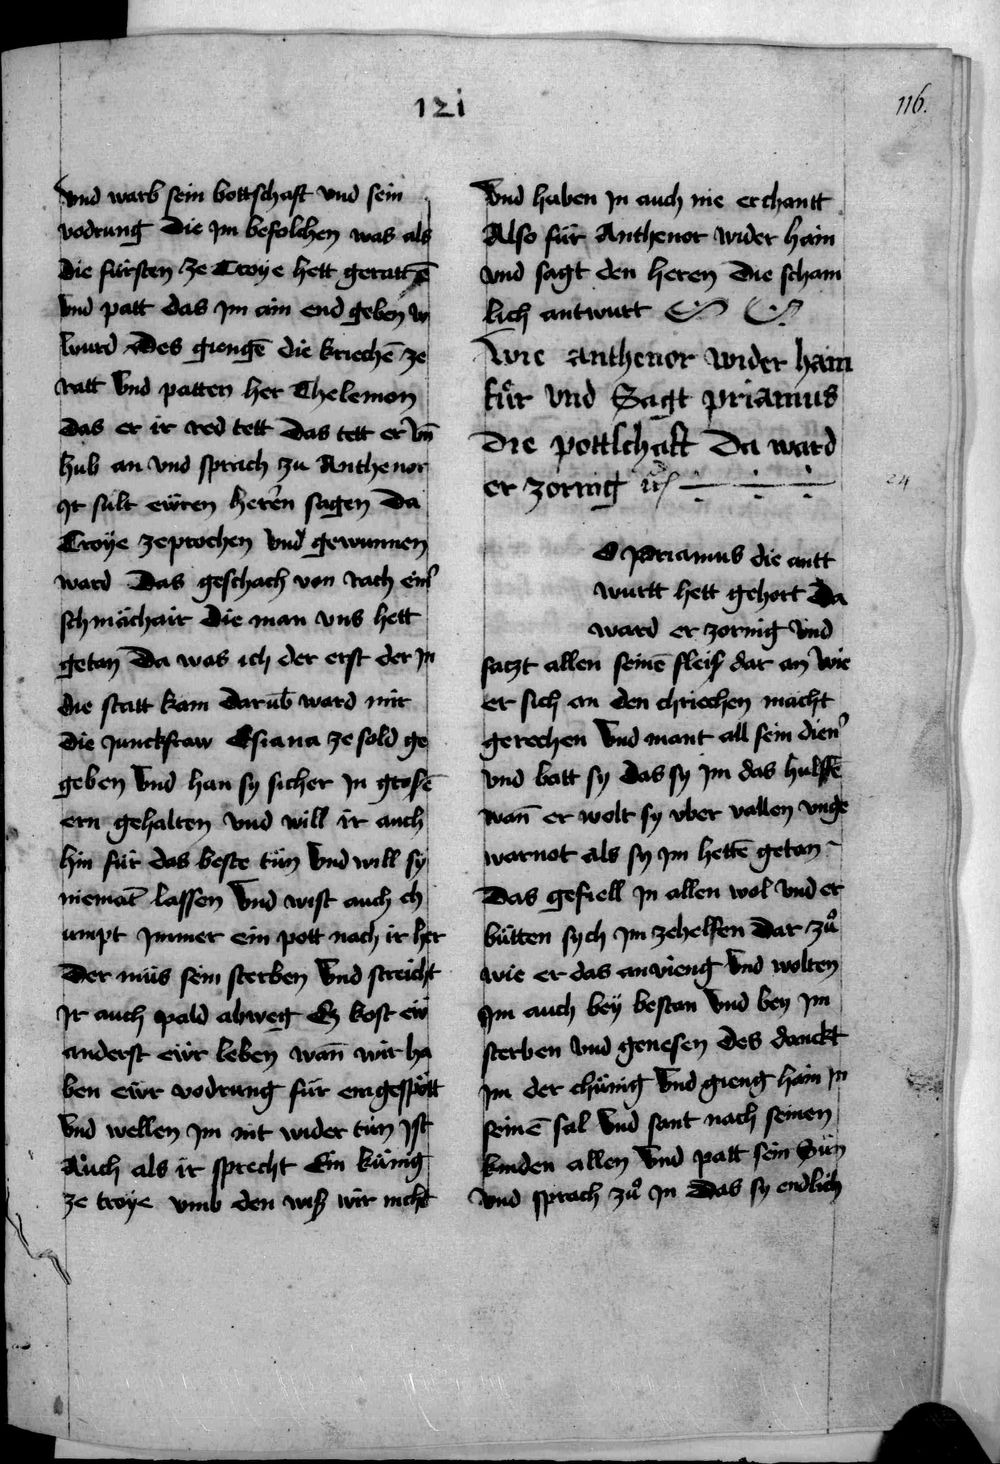 121
116.
vnd warb sein bottschaft vnd sein
vodrung die jm befolchen was als
die fürsten ze Troye hett gerattē
vnd patt das jm ain end geben w
wurd Des giengē die kriechē ze
ratt vnd patten her Thelemon
das er ir red tett das tett er vn̄
hub an vnd sprach zu Anthenor
Ir sült ewren heren sagen da
Troÿe zeprochen vnd gewunnen
ward Das geschach von rach ein
schmächair die man vns hett
getan Da was ich der erst der jn
die statt kam darūb ward mir
die junckfraw Esiana ze sold ge
geben vnd han sy sicher jn grosē
ern gehalten vnd will ir auch
hin für das beste tün vnd will sy
niemāt lassen vnd wist auch ch
umpt jmmer ein pott nach ir her
Der müs sein sterben vnd streicht
Ir auch pald abweg Es kost eẅ
anderst eẅr leben wan̄ wir ha
ben eẅr vodrung für ein gespött
vnd wellen jm nit wider tün jst
Auch als ir sprecht Ein künig
ze troye vmb den wiß wir nicht
vnd haben jn auch nie erchantt
Also für Anthenor wider haim
vnd sagt den heren die scham
lich antwurt
Wie anthenor wider haim
für vnd Sagt priamus
die pottschaft Da ward
er zornig
24
O Priamus die antt
wurtt hett gehort Da
ward er zornig vnd
saczt allen seinē fleiß dar an wie
er sich an den chriechen macht
gerechen vnd mant all sein dien
vnd batt sy das sy jm das hulffē
wan̄ er wolt sy vber vallen vnge
warnot als sy jm hettē getan
Das gefiell jn allen wol vnd er
bütten sych jm zehelfen dar zů
wie er das anvieng vnd wolten
jm auch beÿ bestan vnd bey jm
sterben vnd genesen des danckt
jm der chünig vnd gieng haim jn
seinē sal vnd sant nach seinen
kinden allen vnd patt sein Sün
vnd sprach zů jn Das sy endlich